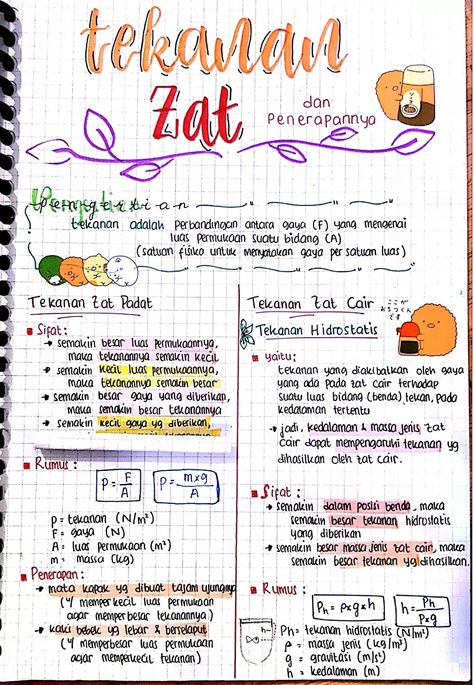 tekanan
Zat
dan
Penerapannya
Pengertian
tekanan adalah perbandingan antara gaya (F) yang mengenai
luas permukaan suatu bidang (A)
(satuan fisika untuk menyatakan gaya per satuan luas)
Tekanan Zat Padat
Sifat:
→ semakin besar luas permukaannya,
maka tekanannya semakin kecil
→ semakin kecil luas permukaannya,
maka tekanannya semakin besar
→ semakin besar gaya yang diberikan,
maka semakin besar tekanannya
→ semakin kecil gaya yg diberikan,
Rumus:
P = F/A
P = m×g/A
P = tekanan (N/m²)
F = gaya (N)
A = luas permukaan (m²)
m = massa (kg)
Penerapan:
→ mata kapak yg dibuat tajam ujungnya
(u/ memperkecil luas permukaan
agar memperbesar tekanannya)
→ kaki bebek yg lebar & berselaput
(u/ memperbesar luas permukaan
agar memperkecil tekanan)
Tekanan Zat Cair
Tekanan Hidrostatis
yaitu:
tekanan yang diakibatkan oleh gaya
yang ada pada zat cair terhadap
suatu luas bidang (benda) tekan, pada
kedalaman tertentu
→ jadi, kedalaman & massa jenis zat
cair dapat mempengaruhi tekanan yg
dihasilkan oleh zat cair.
Sifat:
→ semakin dalam posisi benda, maka
semakin besar tekanan hidrostatis
yang diberikan
→ semakin besar massa jenis zat cair, maka
semakin besar tekanan yg dihasilkan.
Rumus:
Ph = ρ×g×h
h = Ph/ρ×g
h
Ph = tekanan hidrostatis (N/m²)
ρ = massa jenis (kg/m³)
g = gravitasi (m/s²)
h = kedalaman (m)